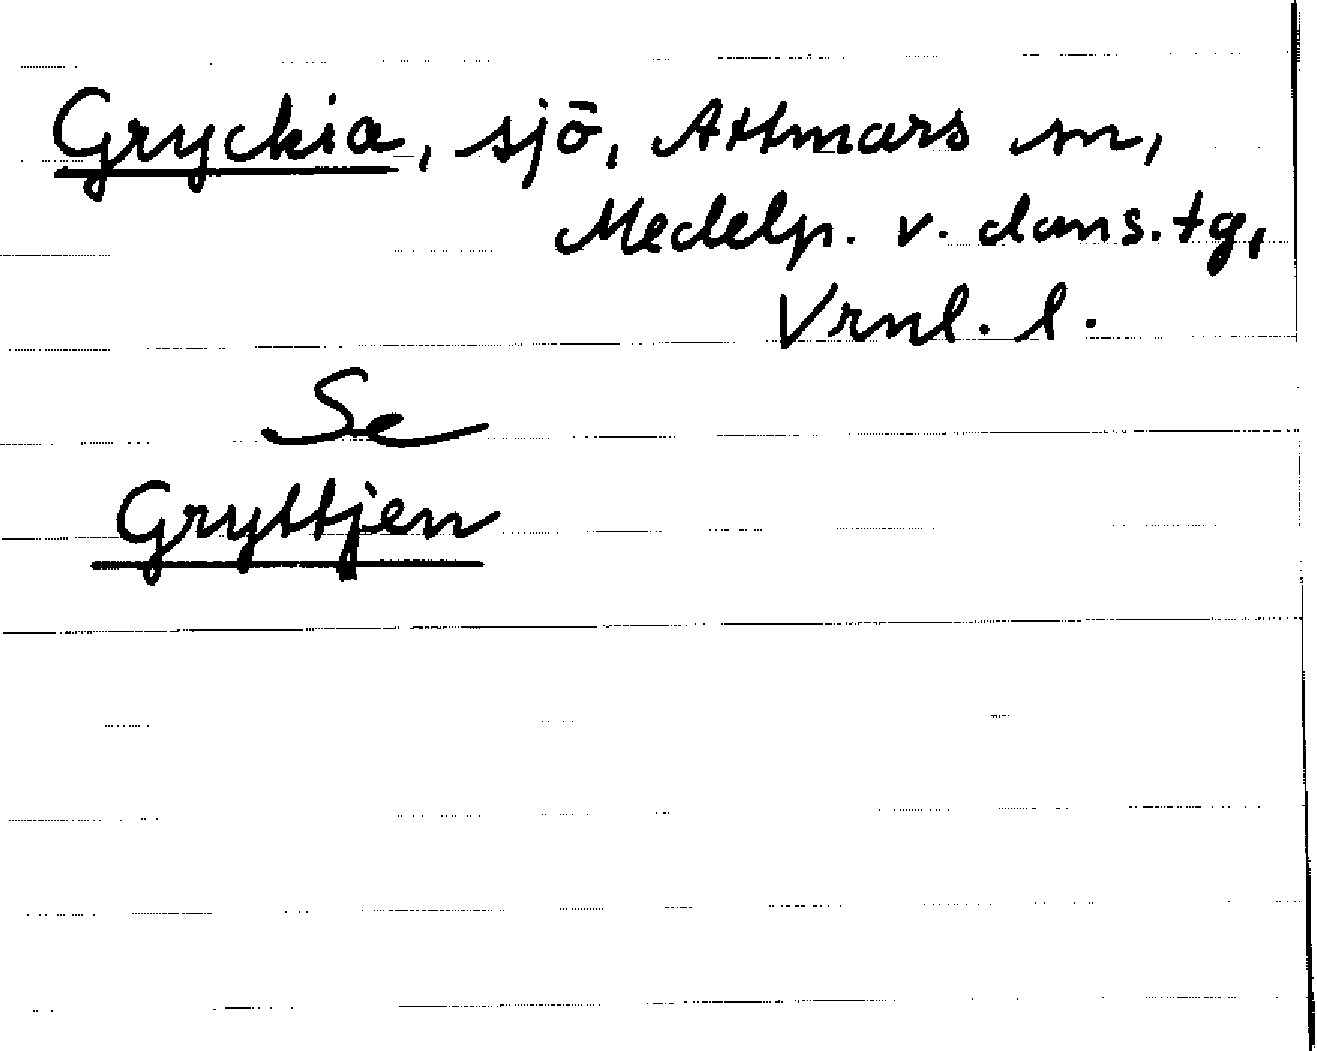 Gryckia, sjö, Attmars sn,
Medelp. v. doms. tg,
Vrnl. l.
Se
Gryttjen